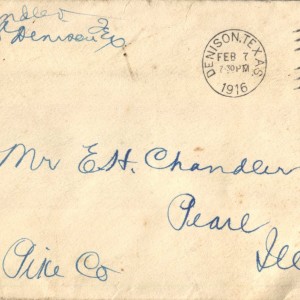 Denison Tex
DENISON, TEXAS
FEB 7
1916
Mr E. H. Chandler
Pearl
Ill
Pike Co